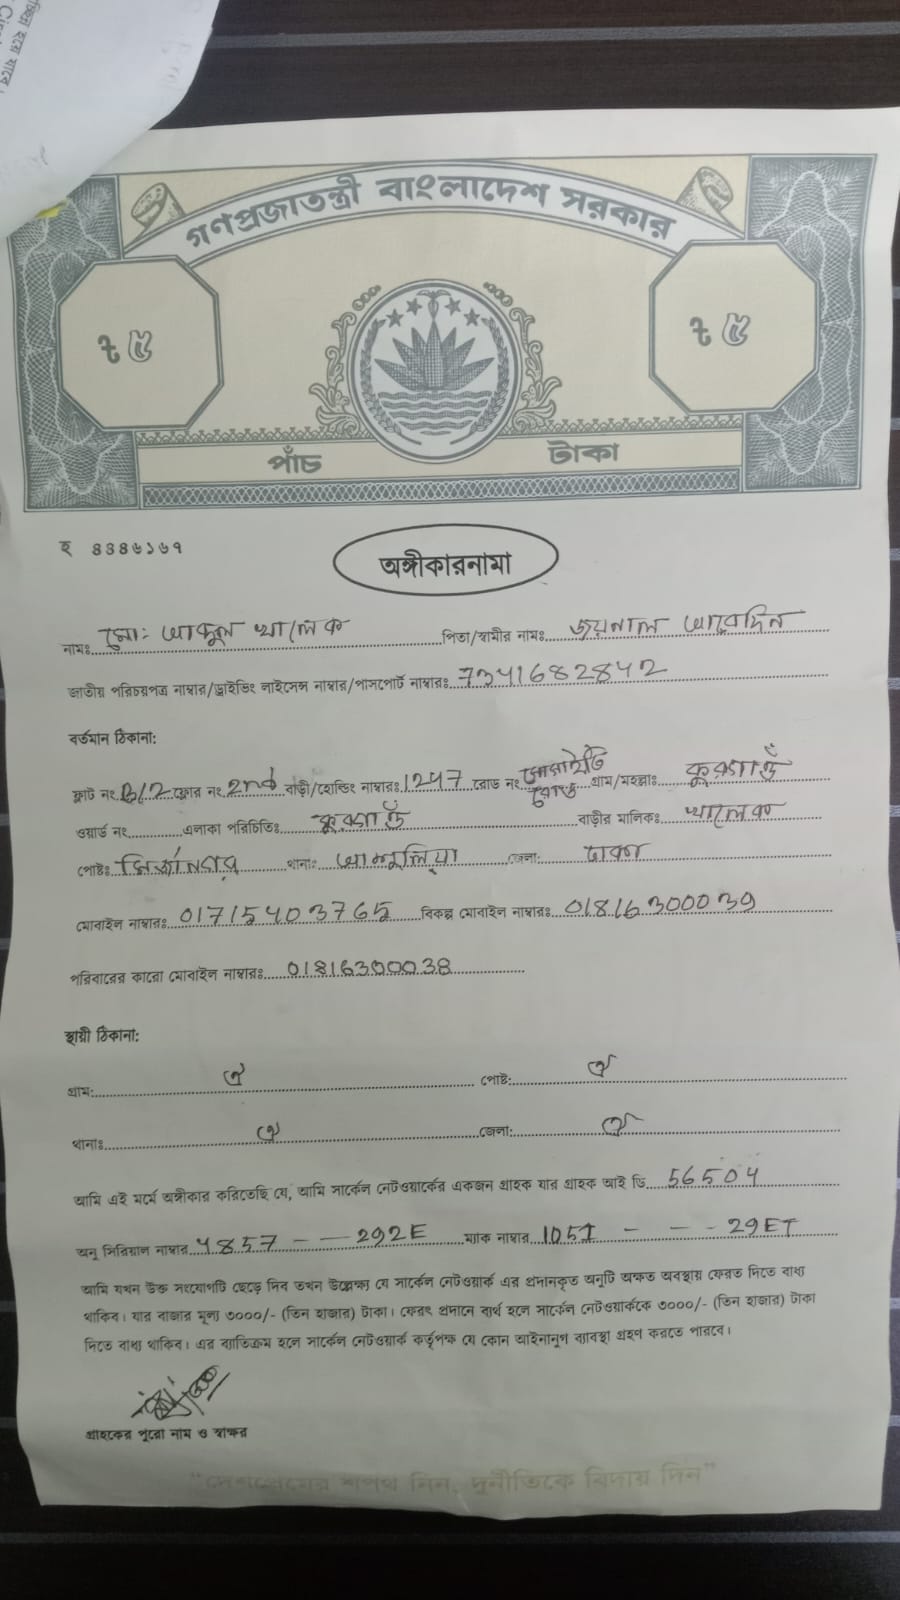 গণপ্রজাতন্ত্রী বাংলাদেশ সরকার
৳ ৫ ৳ ৫
পাঁচ টাকা
হ ৪৪৪৬১৬৭
অঙ্গীকারনামা
নামঃ মোঃ আব্দুল খালেক পিতা/স্বামীর নামঃ জয়নাল আবেদিন
জাতীয় পরিচয়পত্র নাম্বার/ড্রাইভিং লাইসেন্স নাম্বার/পাসপোর্ট নাম্বারঃ 7341682842
বর্তমান ঠিকানা:
ফ্লাট নং B/2 ফ্লোর নং 2nd বাড়ী/হোল্ডিং নাম্বারঃ 1247 রোড নং সোসাইটি রোড গ্রাম/মহল্লাঃ কুরগাঁও
ওয়ার্ড নং এলাকা পরিচিতিঃ কুরগাঁও বাড়ীর মালিকঃ খালেক
পোষ্টঃ মির্জানগর থানাঃ আশুলিয়া জেলা: ঢাকা
মোবাইল নাম্বারঃ 01715403765 বিকল্প মোবাইল নাম্বারঃ 01816300039
পরিবারের কারো মোবাইল নাম্বারঃ 01816300038
স্থায়ী ঠিকানা:
গ্রাম: ঐ পোষ্ট: ঐ
থানাঃ ঐ জেলা: ঐ
আমি এই মর্মে অঙ্গীকার করিতেছি যে, আমি সার্কেল নেটওয়ার্কের একজন গ্রাহক যার গ্রাহক আই ডি 56504
অনু সিরিয়াল নাম্বার 4857 - - 292E ম্যাক নাম্বার 1051 - - - 29ET
আমি যখন উক্ত সংযোগটি ছেড়ে দিব তখন উল্লেক্ষ্য যে সার্কেল নেটওয়ার্ক এর প্রদানকৃত অনুটি অক্ষত অবস্থায় ফেরত দিতে বাধ্য
থাকিব। যার বাজার মূল্য ৩০০০/- (তিন হাজার) টাকা। ফেরৎ প্রদানে ব্যর্থ হলে সার্কেল নেটওয়ার্ককে ৩০০০/- (তিন হাজার) টাকা
দিতে বাধ্য থাকিব। এর ব্যতিক্রম হলে সার্কেল নেটওয়ার্ক কর্তৃপক্ষ যে কোন আইনানুগ ব্যাবস্থা গ্রহণ করতে পারবে।
গ্রাহকের পুরো নাম ও স্বাক্ষর
"দেশপ্রেমের শপথ নিন, দুর্নীতিকে বিদায় দিন"